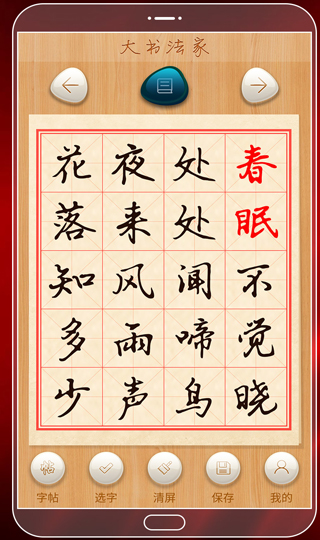 大书法家
春眠不觉晓
处处闻啼鸟
夜来风雨声
花落知多少
字帖
选字
清屏
保存
我的